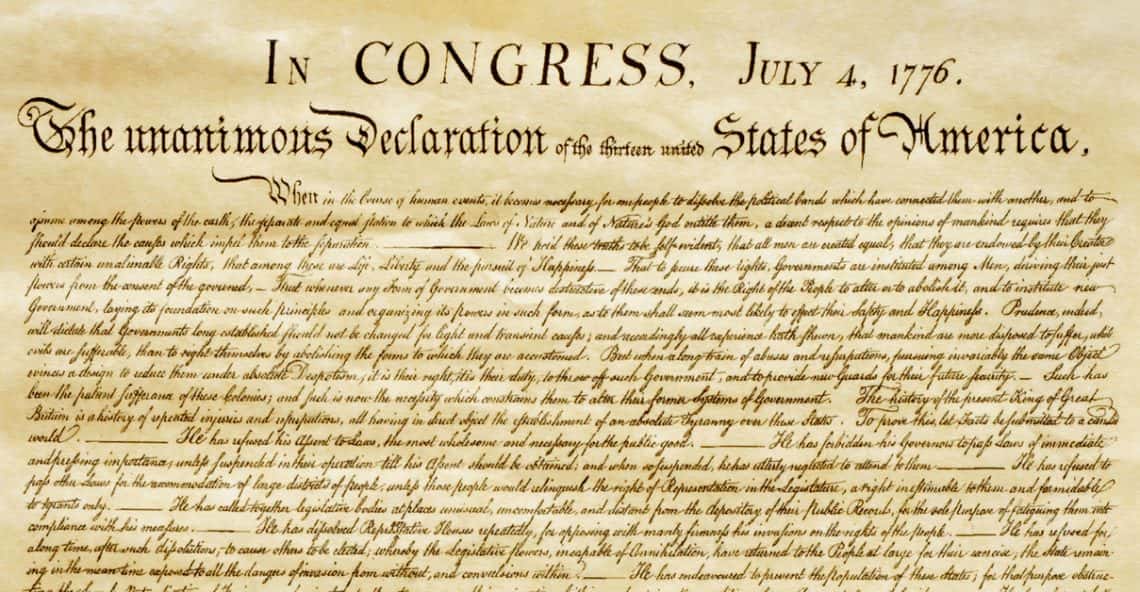 In CONGRESS, July 4, 1776.
The unanimous Declaration of the thirteen united States of America,
When in the Course of human events, it becomes necessary for one people to dissolve the political bands which have connected them with another, and to
assume among the powers of the earth, the separate and equal station to which the Laws of Nature and of Nature's God entitle them, a decent respect to the opinions of mankind requires that they
should declare the causes which impel them to the separation. ——— We hold these truths to be self-evident, that all men are created equal, that they are endowed by their Creator
with certain unalienable Rights, that among these are Life, Liberty and the pursuit of Happiness.— That to secure these rights, Governments are instituted among Men, deriving their just
powers from the consent of the governed,— That whenever any Form of Government becomes destructive of these ends, it is the Right of the People to alter or to abolish it, and to institute new
Government, laying its foundation on such principles and organizing its powers in such form, as to them shall seem most likely to effect their Safety and Happiness. Prudence, indeed,
will dictate that Governments long established should not be changed for light and transient causes; and accordingly all experience hath shewn, that mankind are more disposed to suffer, while
evils are sufferable, than to right themselves by abolishing the forms to which they are accustomed. But when a long train of abuses and usurpations, pursuing invariably the same Object
evinces a design to reduce them under absolute Despotism, it is their right, it is their duty, to throw off such Government, and to provide new Guards for their future security.— Such has
been the patient sufferance of these Colonies; and such is now the necessity which constrains them to alter their former Systems of Government. The history of the present King of Great
Britain is a history of repeated injuries and usurpations, all having in direct object the establishment of an absolute Tyranny over these States. To prove this, let Facts be submitted to a candid
world. ——— He has refused his Assent to Laws, the most wholesome and necessary for the public good. ——— He has forbidden his Governors to pass Laws of immediate
and pressing importance, unless suspended in their operation till his Assent should be obtained; and when so suspended, he has utterly neglected to attend to them. ——— He has refused to
pass other Laws for the accommodation of large districts of people, unless those people would relinquish the right of Representation in the Legislature, a right inestimable to them and formidable
to tyrants only. ——— He has called together legislative bodies at places unusual, uncomfortable, and distant from the depository of their public Records, for the sole purpose of fatiguing them into
compliance with his measures. ——— He has dissolved Representative Houses repeatedly, for opposing with manly firmness his invasions on the rights of the people. ——— He has refused for
a long time, after such dissolutions, to cause others to be elected; whereby the Legislative powers, incapable of Annihilation, have returned to the People at large for their exercise; the State remain-
ing in the mean time exposed to all the dangers of invasion from without, and convulsions within. ——— He has endeavoured to prevent the population of these States; for that purpose obstruc-